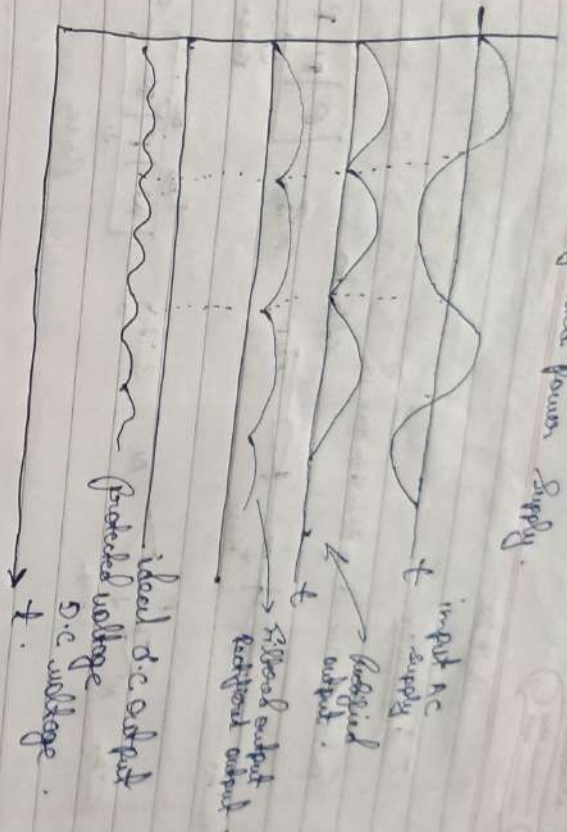 power supply.
t
input AC
supply.
t
Rectified
output.
Filtered output
Rectified output
ideal d.c output
protected voltage
D.C voltage.
t.